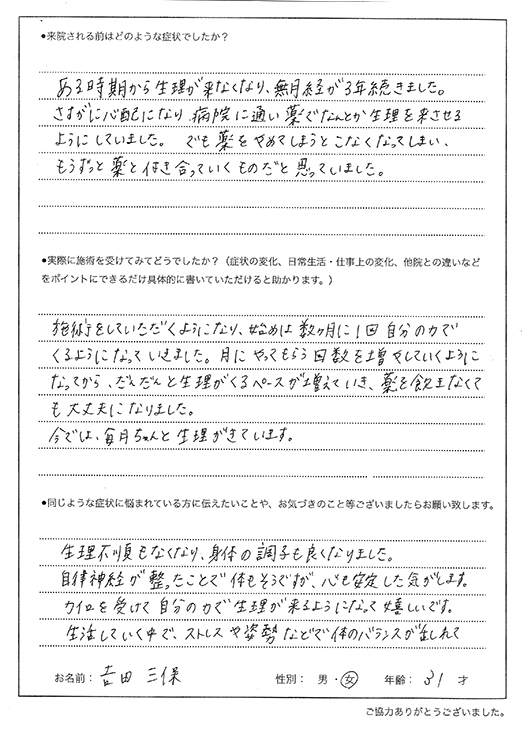 ●来院される前はどのような症状でしたか？
ある時期から生理が来なくなり、無月経が3年続きました。
さすがに心配になり、病院に通い薬でなんとか生理を来させる
ようにしていました。でも薬をやめてしまうとこなくなってしまい、
もうずっと薬と付き合っていくものだと思っていました。
●実際に施術を受けてみてどうでしたか？（症状の変化、日常生活・仕事上の変化、他院との違いなど
をポイントにできるだけ具体的に書いていただけると助かります。）
施術をしていただくようになり、始めは数ヶ月に1回自分の力で
くるようになっていきました。月にやってもらう回数を増やしていくように
なってから、だんだんと生理がくるペースが増えていき、薬を飲まなくて
も大丈夫になりました。
今では、毎月ちゃんと生理がきています。
●同じような症状に悩まれている方に伝えたいことや、お気づきのこと等ございましたらお願い致します。
生理不順もなくなり、身体の調子も良くなりました。
自律神経が整ったことで体もそうですが、心も安定した気がします。
カイロを受けて自分の力で生理が来るようになって嬉しいです。
生活していく中で、ストレスや姿勢などで体のバランスが乱れて
お名前： 吉田 三保 性別： 男・女 年齢： 31 才
ご協力ありがとうございました。